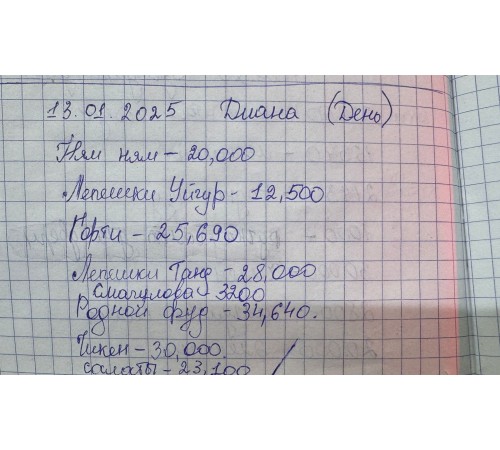 13.01.2025 Диана (День)
Ням ням - 20,000
Лепешки Уйгур - 12,500
Горти - 25,690
Лепешки Танд - 28,000
Смагулова - 3200
Родной фуд - 34,640.
Чикен - 30,000.
Салаты - 23,100